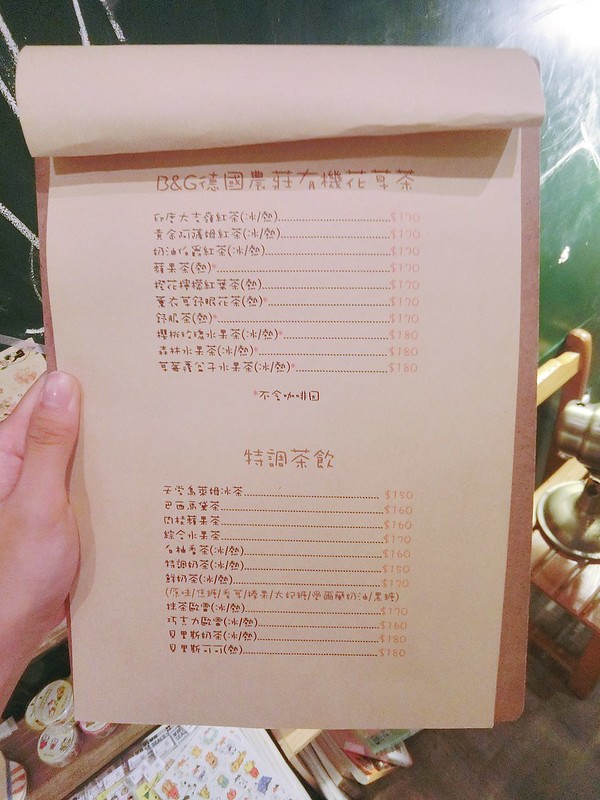 B&G德國農莊有機花草茶
印度大吉嶺紅茶(冰/熱)......$170
黃金阿薩姆紅茶(冰/熱)......$170
奶油伯爵紅茶(冰/熱)......$170
蘋果茶(熱)*......$170
橙花檸檬紅葉茶(熱)......$170
薰衣草舒眠花茶(熱)*......$170
舒服茶(熱)*......$170
櫻桃玫瑰水果茶(冰/熱)*......$180
森林水果茶(冰/熱)*......$180
草莓覆盆子水果茶(冰/熱)*......$180
*不含咖啡因
特調茶飲
天堂烏萊姆冰茶......$150
巴西馬黛茶......$160
肉桂蘋果茶......$160
綜合水果茶......$170
白柚香茶(冰/熱)......$160
特調奶茶(冰/熱)......$150
鮮奶茶(冰/熱)......$170
(原味/焦糖/香草/榛果/太妃糖/愛爾蘭奶油/黑糖)
抹茶歐蕾(冰/熱)......$170
巧克力歐蕾(冰/熱)......$160
貝里斯奶茶(冰/熱)......$180
貝里斯可可(熱)......$180